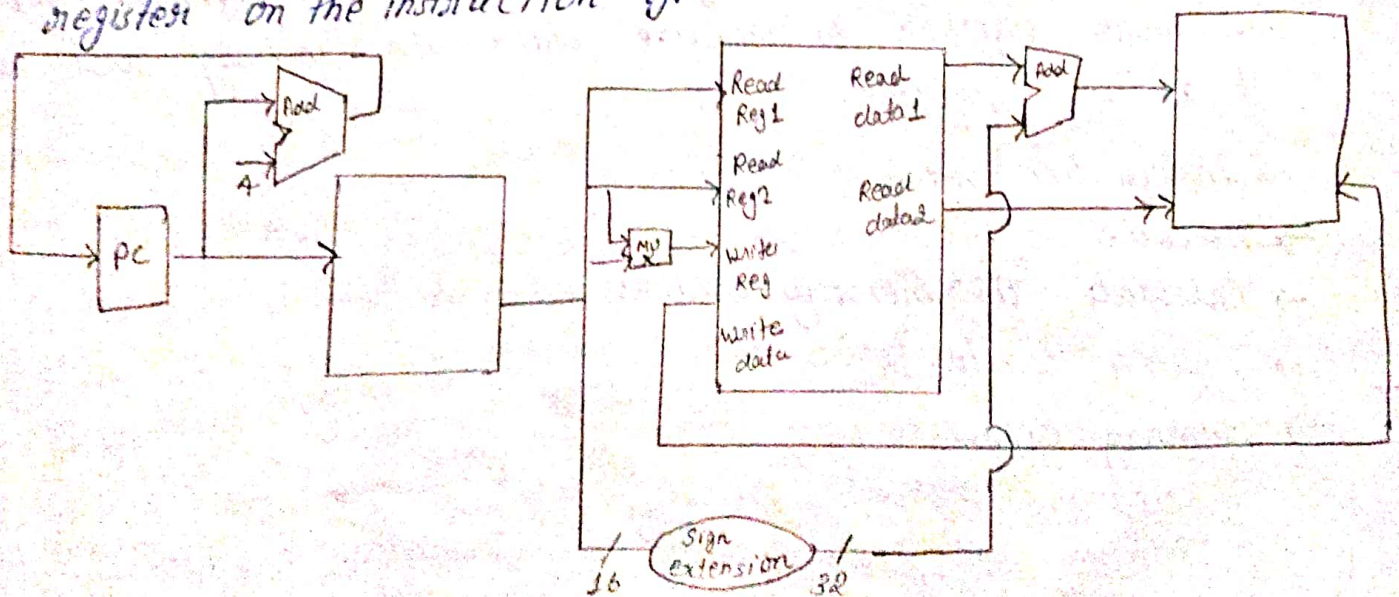 register on the instruction
Add
4
PC
Read
Reg1
Read
Reg2
MU
X
Write
Reg
Write
data
Read
data1
Read
data2
Add
Sign
extension
16
32